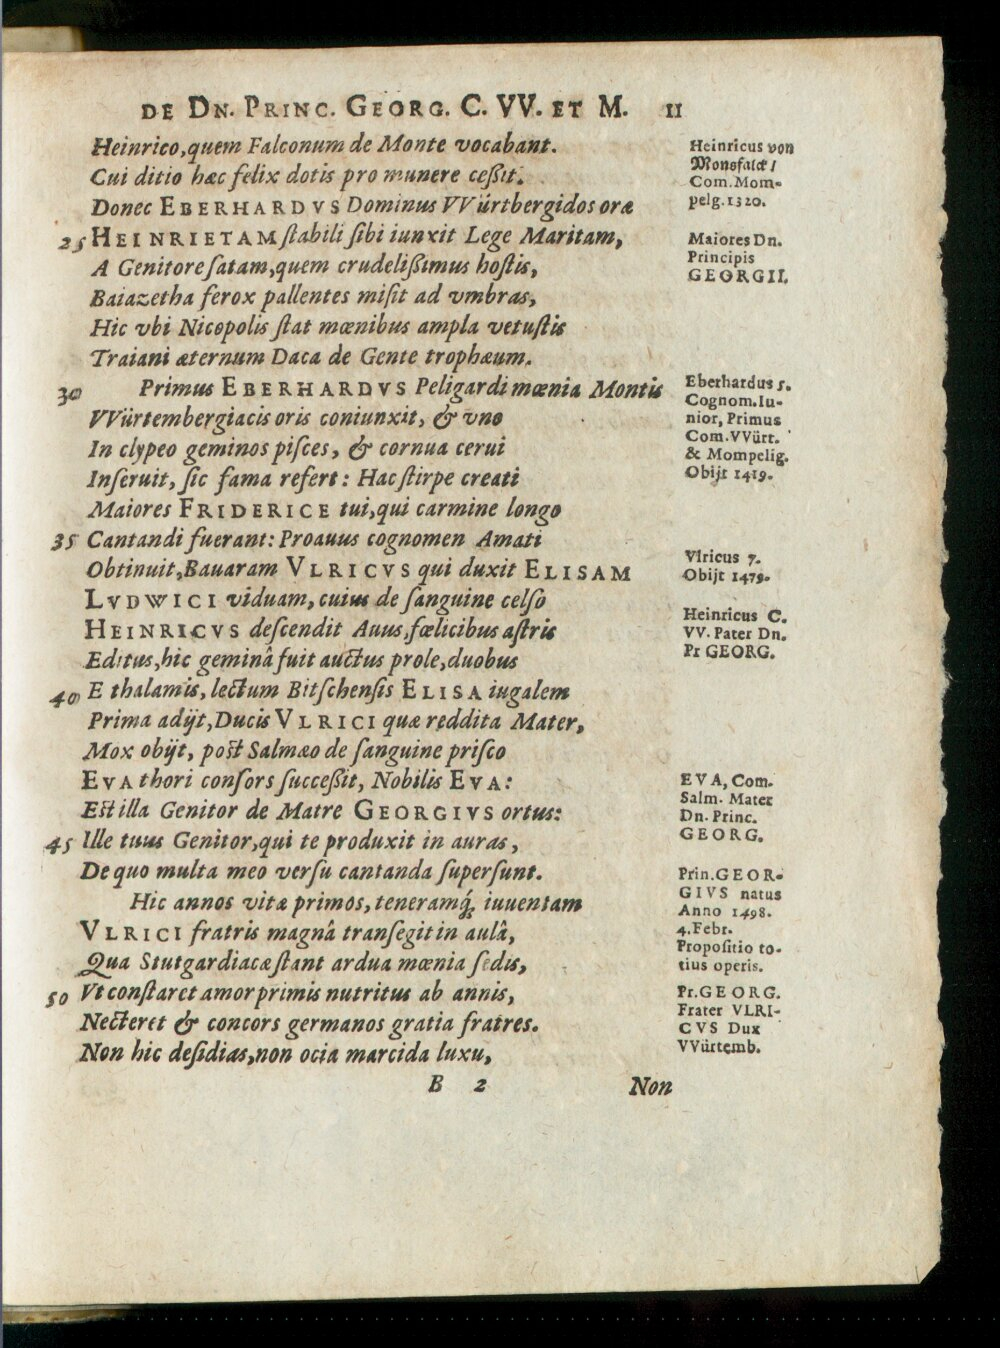 DE DN. PRINC. GEORG. C. VV. ET M. 11
Heinrico, quem Falconum de Monte vocabant.
Cui ditio hæc felix dotis pro munere ceßit.
Donec EBERHARDVS Dominus VVürtbergidos oræ
25 HEINRIETAM ſtabili ſibi iunxit Lege Maritam,
A Genitore ſatam, quem crudelißimus hoſtis,
Baiazetha ferox pallentes miſit ad vmbras,
Hic vbi Nicopolis ſtat mœnibus ampla vetuſtis
Traiani æternum Daca de Gente trophæum.
30 Primus EBERHARDVS Peligardi mœnia Montis
VVürtembergiacis oris coniunxit, & vno
In clypeo geminos piſces, & cornua cerui
Inſeruit, ſic fama refert: Hac ſtirpe creati
Maiores FRIDERICE tui, qui carmine longo
35 Cantandi fuerant: Proauus cognomen Amati
Obtinuit, Bauaram VLRICVS qui duxit ELISAM
LVDWICI viduam, cuius de ſanguine celſo
HEINRICVS deſcendit Auus, fœlicibus aſtris
Editus, hic geminâ fuit auctus prole, duobus
40 E thalamis, lectum Bitſchenſis ELISA iugalem
Prima adijt, Ducis VLRICI quæ reddita Mater,
Mox obijt, poſt Salmæo de ſanguine priſco
EVA thori conſors ſucceßit, Nobilis EVA:
Eſt illa Genitor de Matre GEORGIVS ortus:
45 Ille tuus Genitor, qui te produxit in auras,
De quo multa meo verſu cantanda ſuperſunt.
Hic annos vitæ primos, teneramq́; iuuentam
VLRICI fratris magnâ tranſegit in aulâ,
Qua Stutgardiacæ ſtant ardua mœnia ſedis,
50 Vt conſtaret amor primis nutritus ab annis,
Necteret & concors germanos gratia fratres.
Non hic deſidias, non ocia marcida luxu,
B 2 Non
Heinricus von
Monsfalck /
Com. Mom-
pelg. 1320.
Maiores Dn.
Principis
GEORGII.
Eberhardus 5.
Cognom. Iu-
nior, Primus
Com. VVürt.
& Mompelig.
Obijt 1419.
Vlricus 7.
Obijt 1479.
Heinricus C.
VV. Pater Dn.
Pr GEORG.
EVA, Com.
Salm. Mater
Dn. Princ.
GEORG.
Prin. GEOR-
GIVS natus
Anno 1498.
4. Febr.
Propoſitio to-
tius operis.
Pr. GEORG.
Frater VLRI-
CVS Dux
VVürtemb.